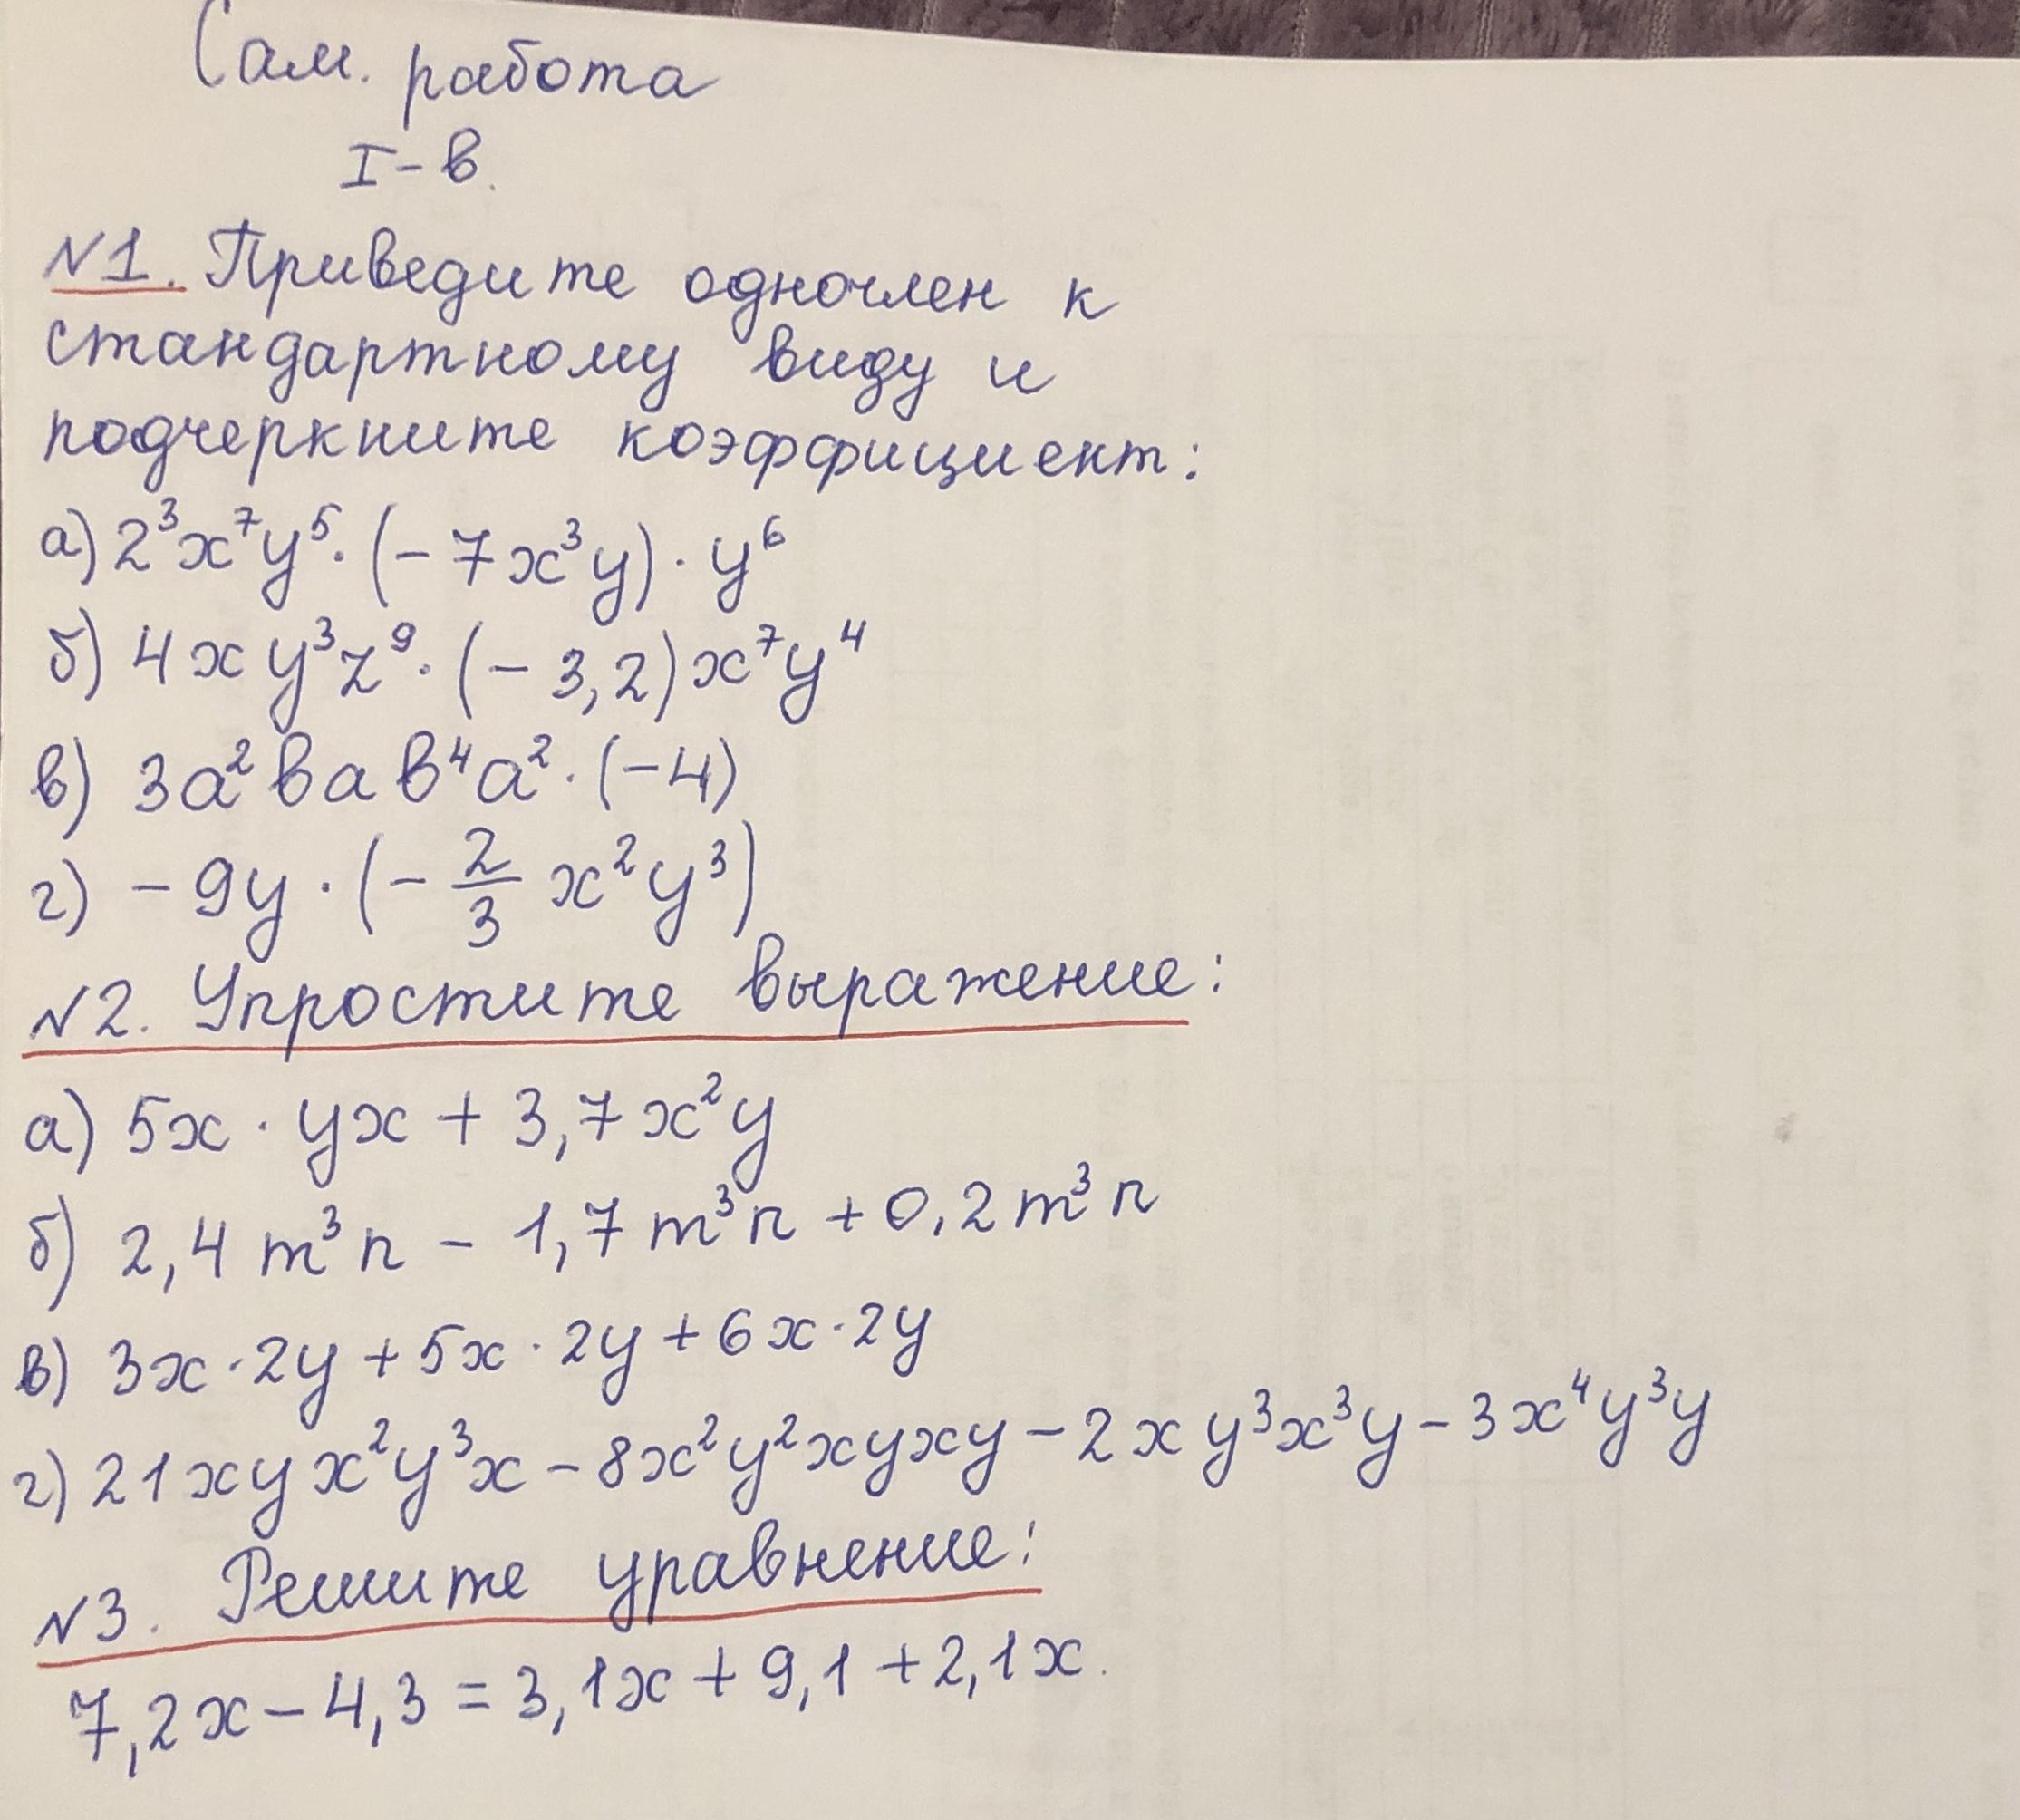 Сам. работа
I-в.
№1. Приведите одночлен к
стандартному виду и
подчеркните коэффициент:
а) 2³x⁷y⁵ · (-7x³y) · y⁶
б) 4xy³z⁹ · (-3,2)x⁷y⁴
в) 3a²bab⁴a² · (-4)
г) -9y · (-2/3 x²y³)
№2. Упростите выражение:
а) 5x · yx + 3,7x²y
б) 2,4m³n - 1,7m³n + 0,2m³n
в) 3x · 2y + 5x · 2y + 6x · 2y
г) 21xyx²y³x - 8x²y²xyxy - 2xy³x³y - 3x⁴y³y
№3. Решите уравнение:
7,2x - 4,3 = 3,1x + 9,1 + 2,1x.